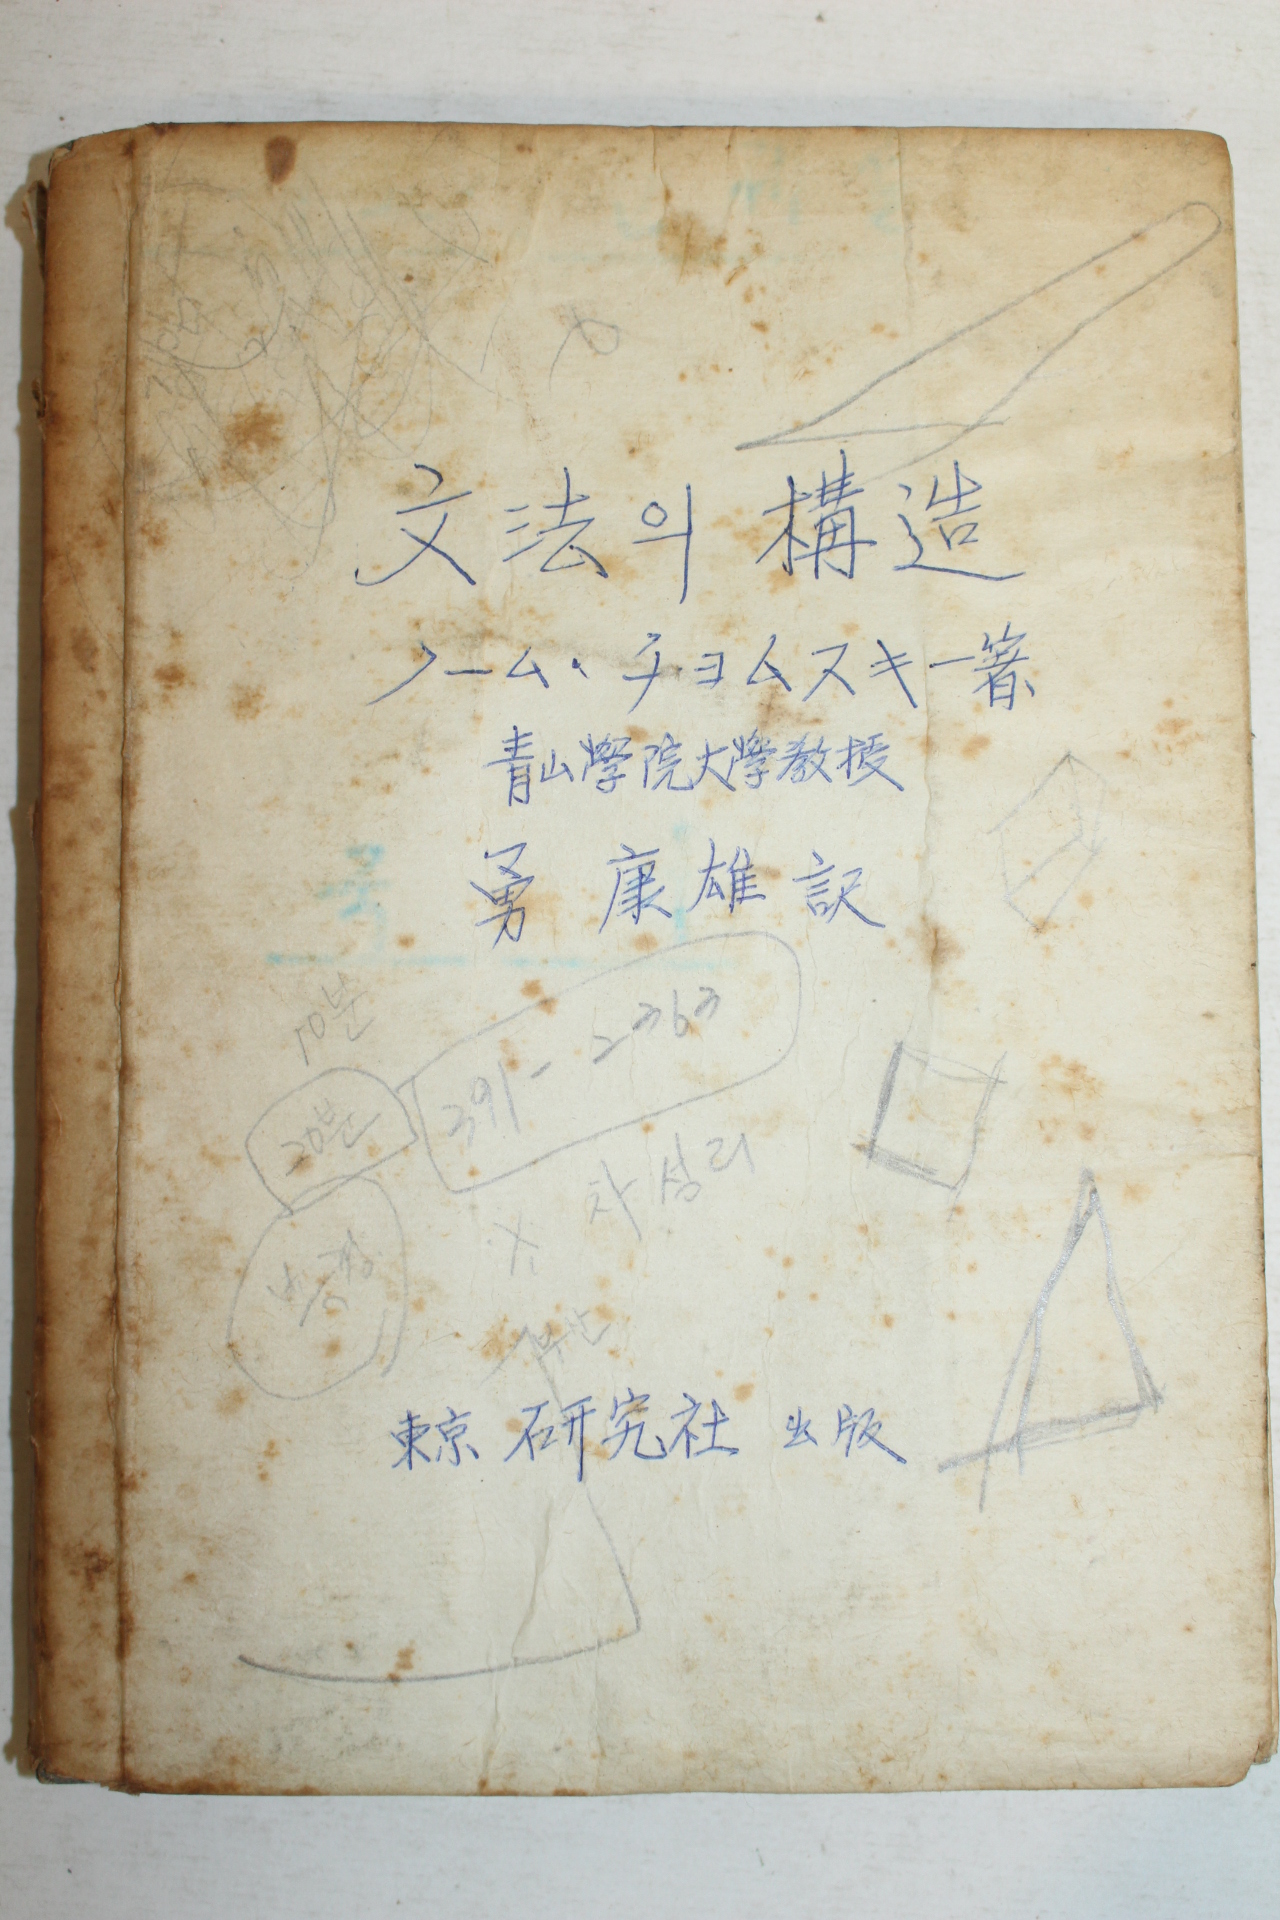 文法의 構造
ノーム・チョムスキー著
青山學院大學敎授
勇 康雄 訳
10분
391-2363
20분
차 섬리
東京 研究社 出版